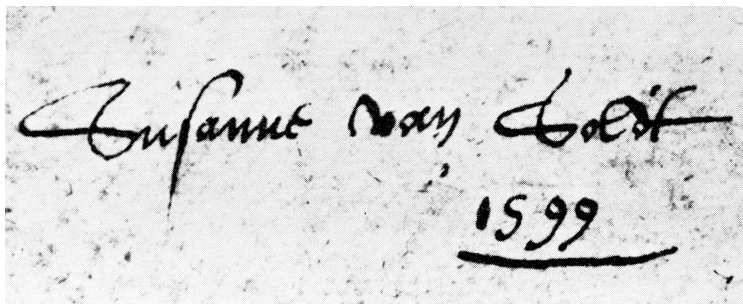 Susanne van Soldt
1599